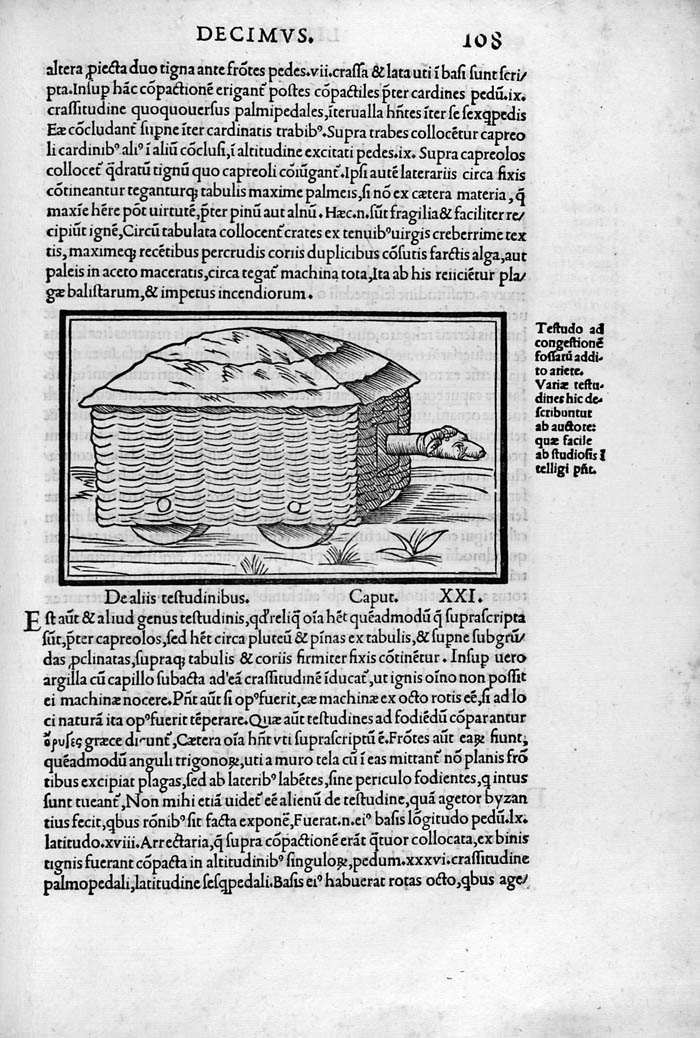 DECIMVS. 108
altera ꝓiecta duo tigna ante frōtes pedes.vii.crassa & lata uti ī basi sunt scri/
pta.Insup hāc cōpactionē erigant̄ postes cōpactiles p̄ter cardines pedū.ix.
crassitudine quoquouersus palmipedales,īterualla hn̄tes īter se sexq̄pedis
Eæ cōcludant̄ supne īter cardinatis trabibꝰ.Supra trabes collocētur capreo
li cardinibꝰ aliꝰ ī aliū cōclusi,ī altitudine excitati pedes.ix. Supra capreolos
collocet̄ q̄dratū tignū quo capreoli cōiūgant̄.Ipsi autē laterariis circa fixis
cōtineantur teganturqꝫ tabulis maxime palmeis,si nō ex cætera materia, q̄
maxīe hēre pōt uirtutē,p̄ter pinū aut alnū. Hæc.n.sūt fragilia & faciliter re/
cipiūt ignē,Circū tabulata collocent̄ crates ex tenuibꝰ uirgis creberrime tex
tis, maximeqꝫ recētibus percrudis coriis duplicibus cōsutis farctis alga,aut
paleis in aceto maceratis,circa tegat̄ machina tota,Ita ab his reiiciētur pla/
gæ balistarum,& impetus incendiorum.
Testudo ad
congestionē
fossarū addi/
to ariete.
Variæ testu/
dines hic de/
scribuntur
ab auctore:
quæ facile
ab studiosis ī
telligi pn̄t.
De aliis testudinibus. Caput. XXI.
Est aūt & aliud genus testudinis, qd̓ reliq̄ oīa hēt quēadmodū q̄ suprascripta
sūt,p̄ter capreolos,sed hēt circa pluteū & pīnas ex tabulis,& supne subgrū/
das ꝓclinatas,supraqꝫ tabulis & coriis firmiter fixis cōtinētur. Insup uero
argilla cū capillo subacta ad'eā crassitudinē īducat̄,ut ignis oīno non possit
ei machinæ nocere.Pn̄t aūt si opꝰ fuerit,eæ machinæ ex octo rotis eē,si ad lo
ci naturā ita opꝰ fuerit tēperare. Quæ aūt testudines ad fodiēdū cōparantur
ὄρυγες græce dicunt̄,Cætera oīa hn̄t vti suprascriptū ē.Frōtes aūt eaꝝ fiunt,
quēadmodū anguli trigonoꝝ,uti a muro tela cū ī eas mittant̄ nō planis frō
tibus excipiat plagas,sed ab lateribꝰ labētes,sine periculo fodientes,q̄ intus
sunt tueant̄,Non mihi etiā uidet̄ eē alienū de testudine,quā agetor byzan
tius fecit,qbus rōnibꝰ sit facta exponē,Fuerat.n.eiꝰ basis lōgitudo pedū.lx.
latitudo.xviii.Arrectaria,q̄ supra cōpactionē erāt q̄tuor collocata,ex binis
tignis fuerant cōpacta in altitudinibꝰ singuloꝝ,pedum.xxxvi.crassitudine
palmopedali,latitudine sesq̄pedali.Basis eiꝰ habuerat rotas octo,qbus age/